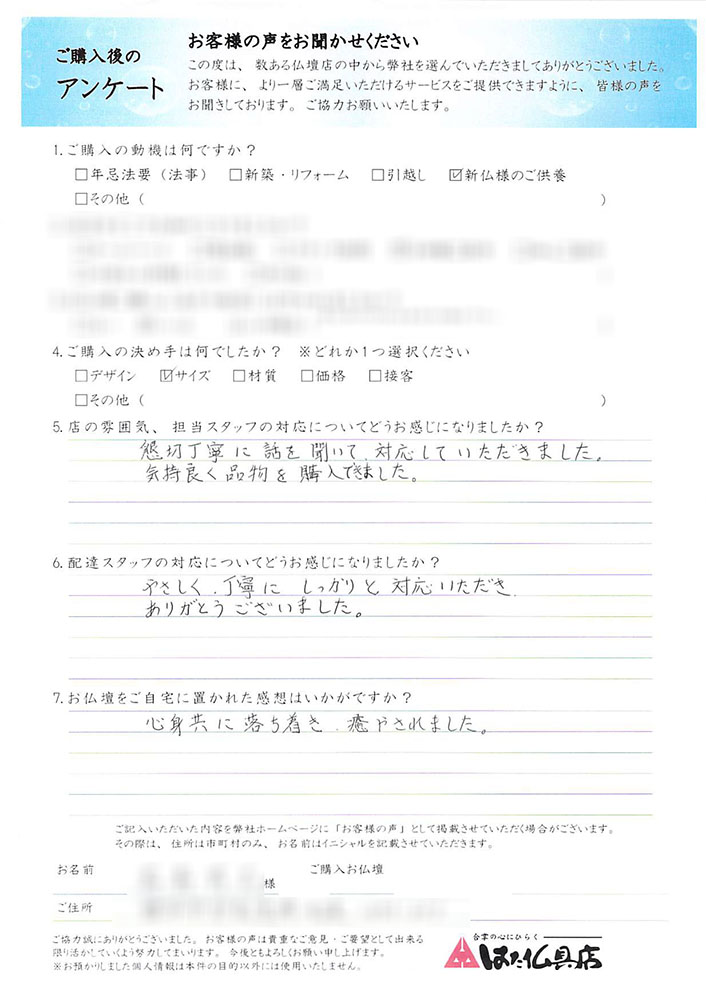 ご購入後の
アンケート
お客様の声をお聞かせください
この度は、数ある仏壇店の中から弊社を選んでいただきましてありがとうございました。
お客様に、より一層ご満足いただけるサービスをご提供できますように、皆様の声を
お聞きしております。ご協力お願いいたします。
1.ご購入の動機は何ですか？
□年忌法要（法事） □新築・リフォーム □引越し ☑新仏様のご供養
□その他（ ）
4.ご購入の決め手は何でしたか？ ※どれか1つ選択ください
□デザイン ☑サイズ □材質 □価格 □接客
□その他（ ）
5.店の雰囲気、担当スタッフの対応についてどうお感じになりましたか？
懇切丁寧に話を聞いて、対応していただきました。
気持良く品物を購入できました。
6.配達スタッフの対応についてどうお感じになりましたか？
やさしく、丁寧に しっかりと対応いただき
ありがとうございました。
7.お仏壇をご自宅に置かれた感想はいかがですか？
心身共に落ち着き、癒やされました。
ご記入いただいた内容を弊社ホームページに「お客様の声」として掲載させていただく場合がございます。
その際は、住所は市町村のみ、お名前はイニシャルを記載させていただきます。
お名前 様 ご購入お仏壇
ご住所
ご協力誠にありがとうございました。お客様の声は貴重なご意見・ご要望として出来る
限り活かしていくよう努力してまいります。今後ともよろしくお願い申し上げます。
※お預かりしました個人情報は本件の目的以外には使用いたしません。
合掌の心にひらく
はた仏具店